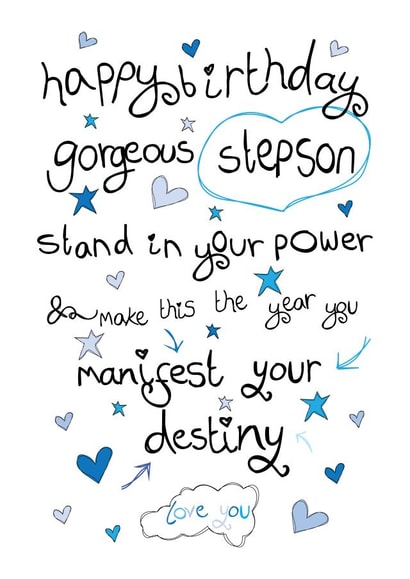 happy birthday
gorgeous stepson
stand in your power
& make this the year you
manifest your
destiny
love you